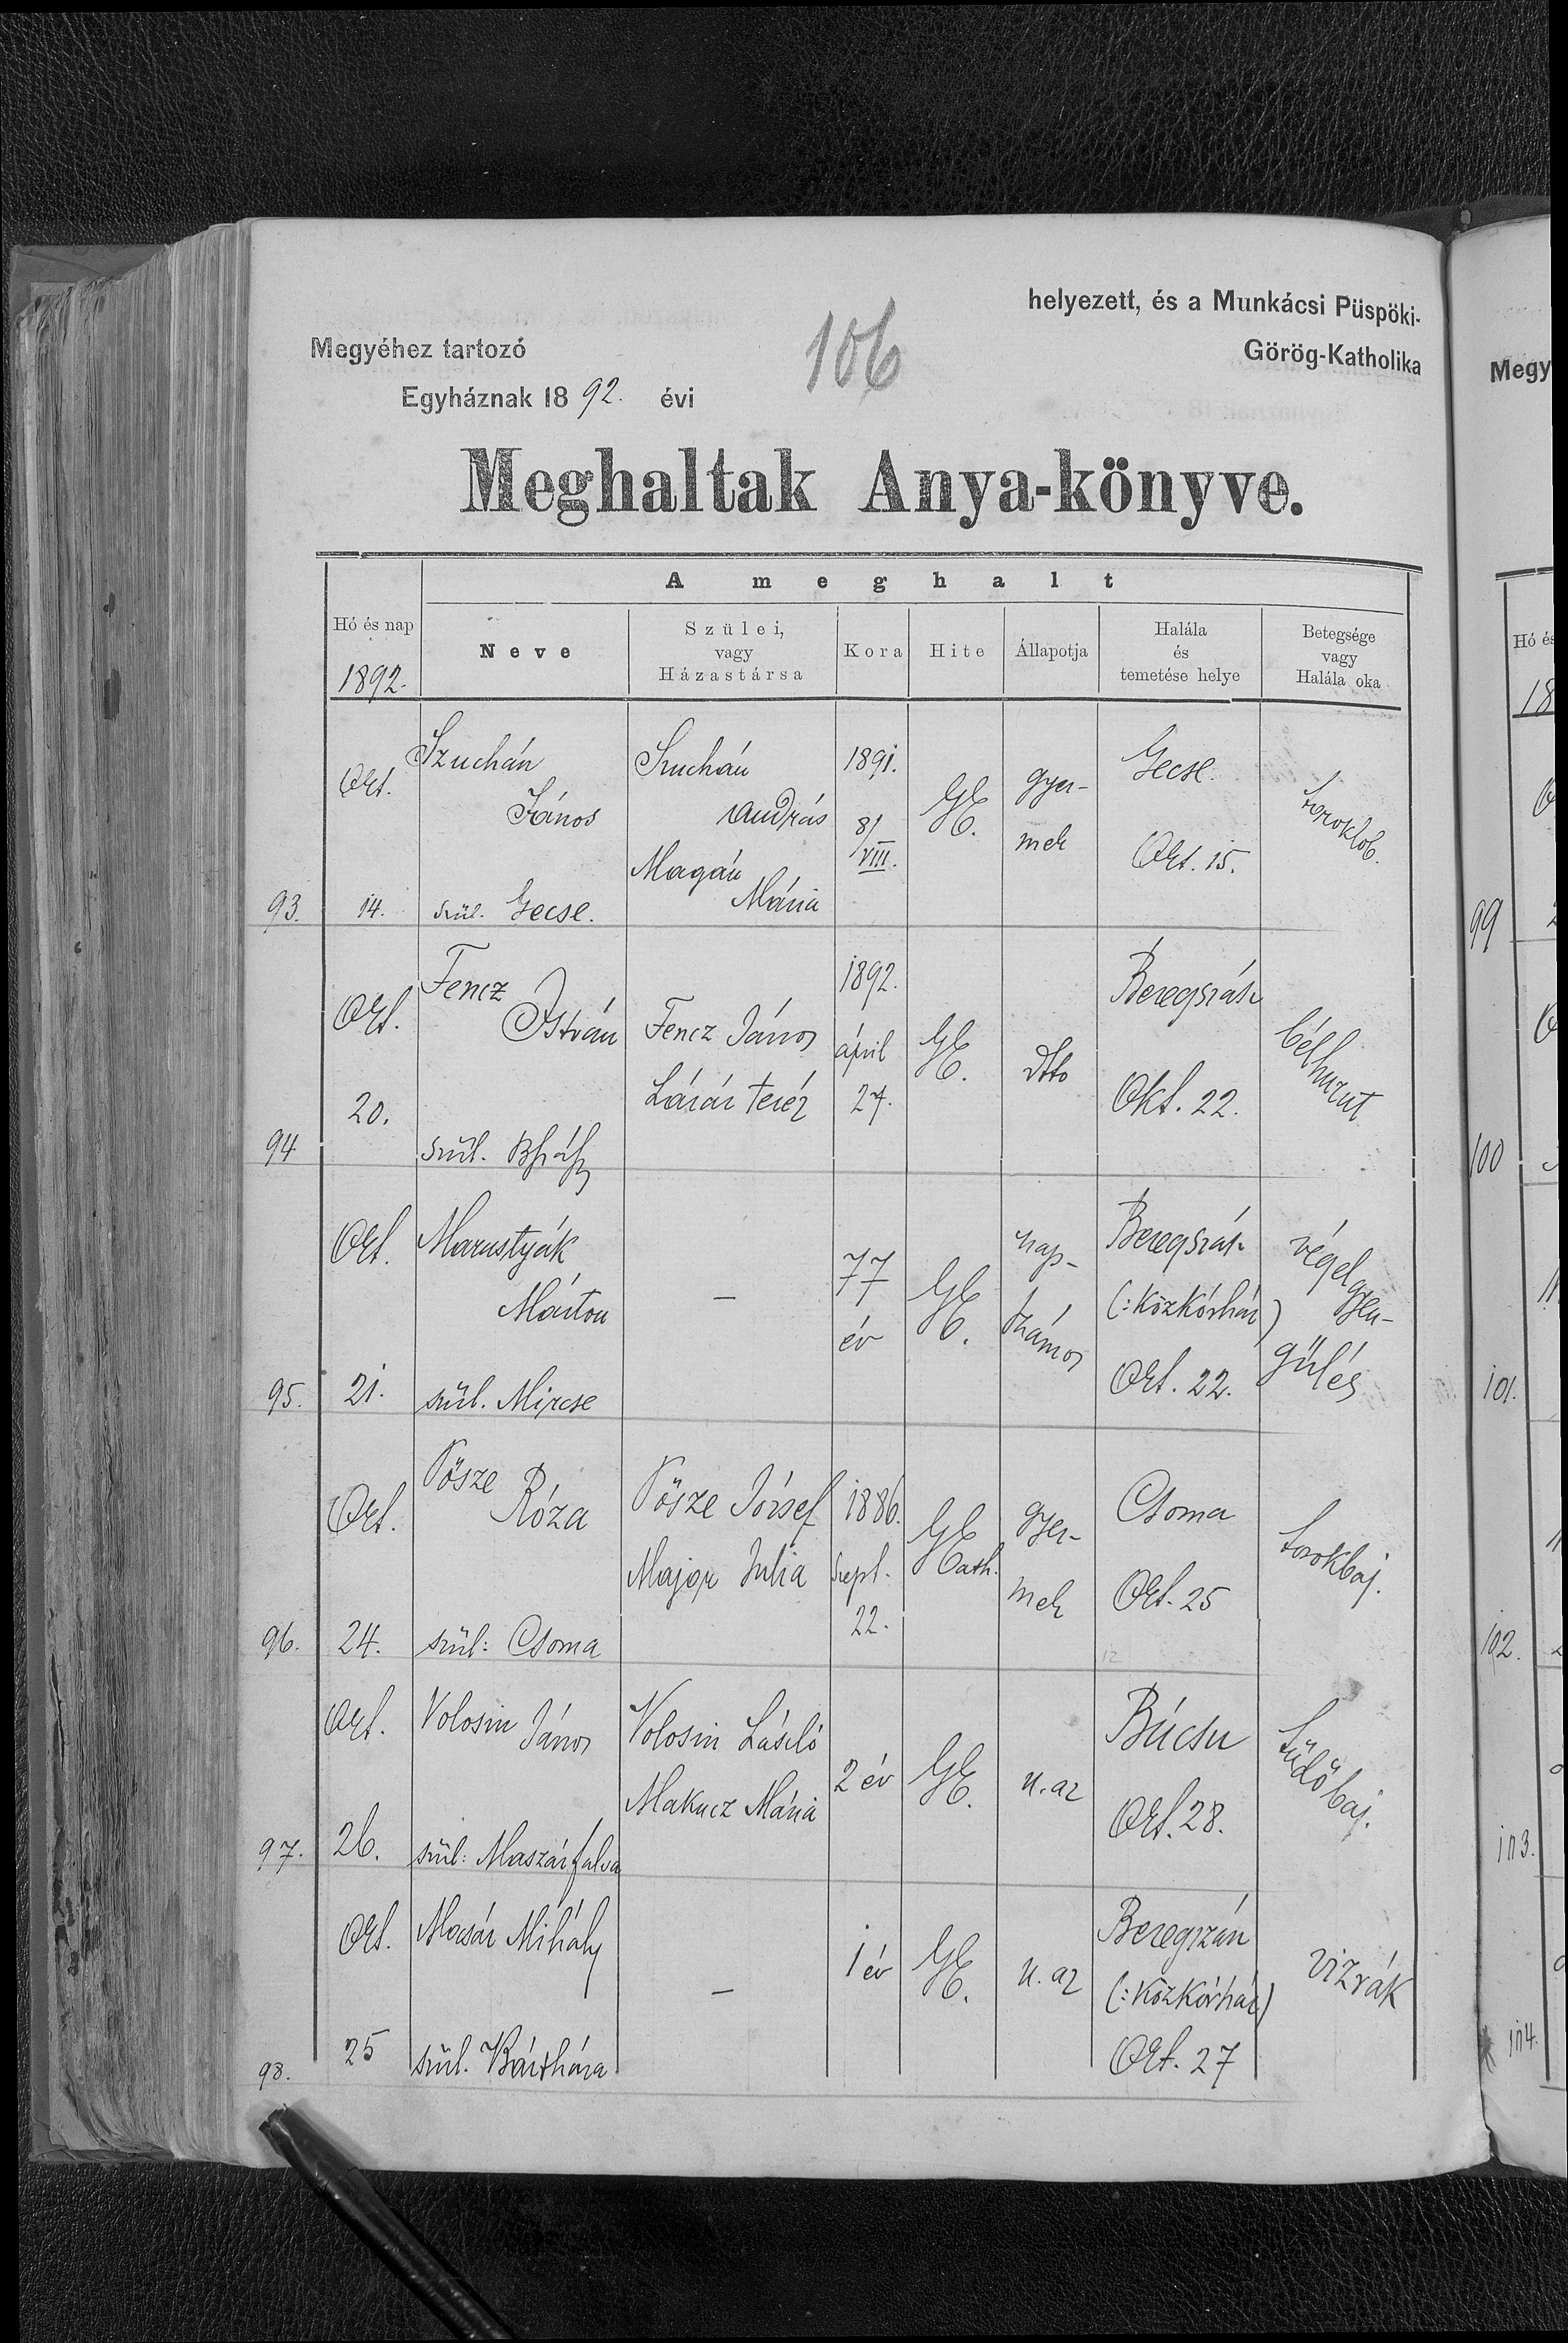 helyezett, és a Munkácsi Püspöki-
Megyéhez tartozó 106 Görög-Katholika
Egyháznak 1892. évi
Meghaltak Anya-könyve.
A meghalt
Hó és nap 1892.
Neve
Szülei, vagy Házastársa
Kora
Hite
Állapotja
Halála és temetése helye
Betegsége vagy Halála oka
93. Okt. 14.
Szuchán János
szül. Gecse.
Szuchán András
Magán Mária
1891. 8/VIII.
GK.
gyer-
mek
Gecse.
Okt. 15.
toroklob.
94 Okt. 20.
Fencz István
szül. Bhász
Fencz János
Lázár Teréz
1892.
ápril
27.
GK.
dtto
Beregszász
Okt. 22.
bélhurut
95. Okt. 21.
Marustyák
Márton
szül. Mircse
—
77
év
GK.
nap-
számos
Beregszász
(:Közkórház)
Okt. 22.
végelgyen-
gülés
96. Okt. 24.
Pősze Róza
szül: Csoma
Pősze József
Major Julia
1886.
Szept.
22.
GKath.
gyer-
mek
Csoma
Okt. 25
12
torokbaj.
97. Okt. 26.
Volosin János
szül: Maszárfalva
Volosin László
Makucz Mária
2 év
GK.
u. az
Búcsu
Okt. 28.
tüdőbaj.
98. Okt. 25
Mocsár Mihály
szül. Bártháza
—
1 év
GK.
u. az
Beregszász
(:Közkórház)
Okt. 27
vizrák
Megy
Hó és
18
99
100
101.
102.
103.
104.